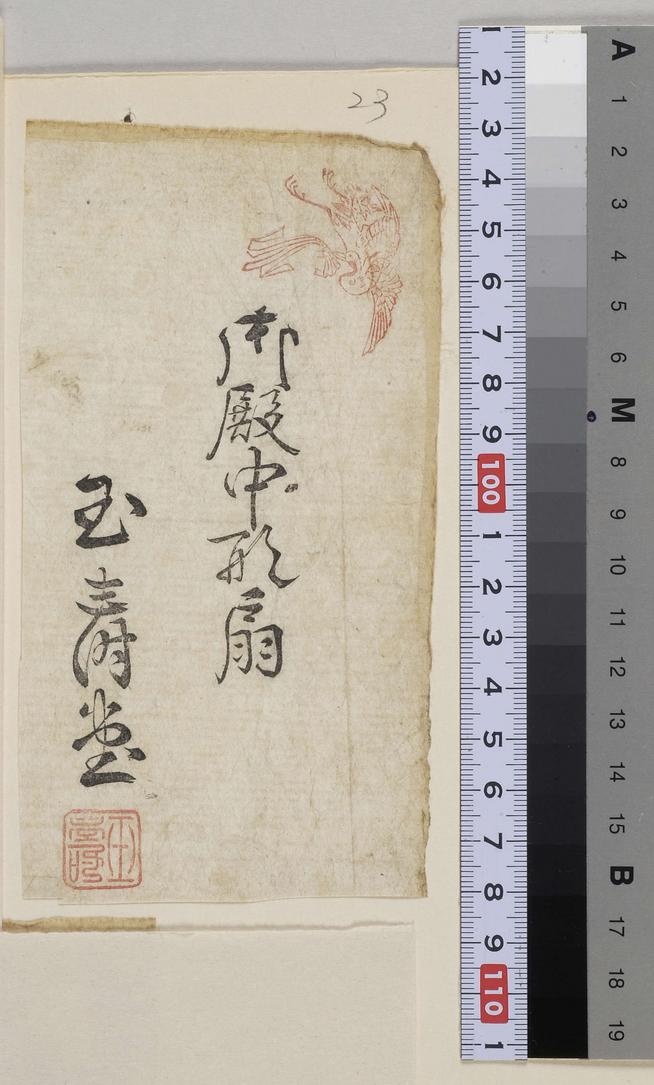 23
御殿中形扇
玉壽堂
玉壽堂
1 2 3 4 5 6 7 8 9 100 1 2 3 4 5 6 7 8 9 110 1
A 1 2 3 4 5 6 M 8 9 10 11 12 13 14 15 B 17 18 19